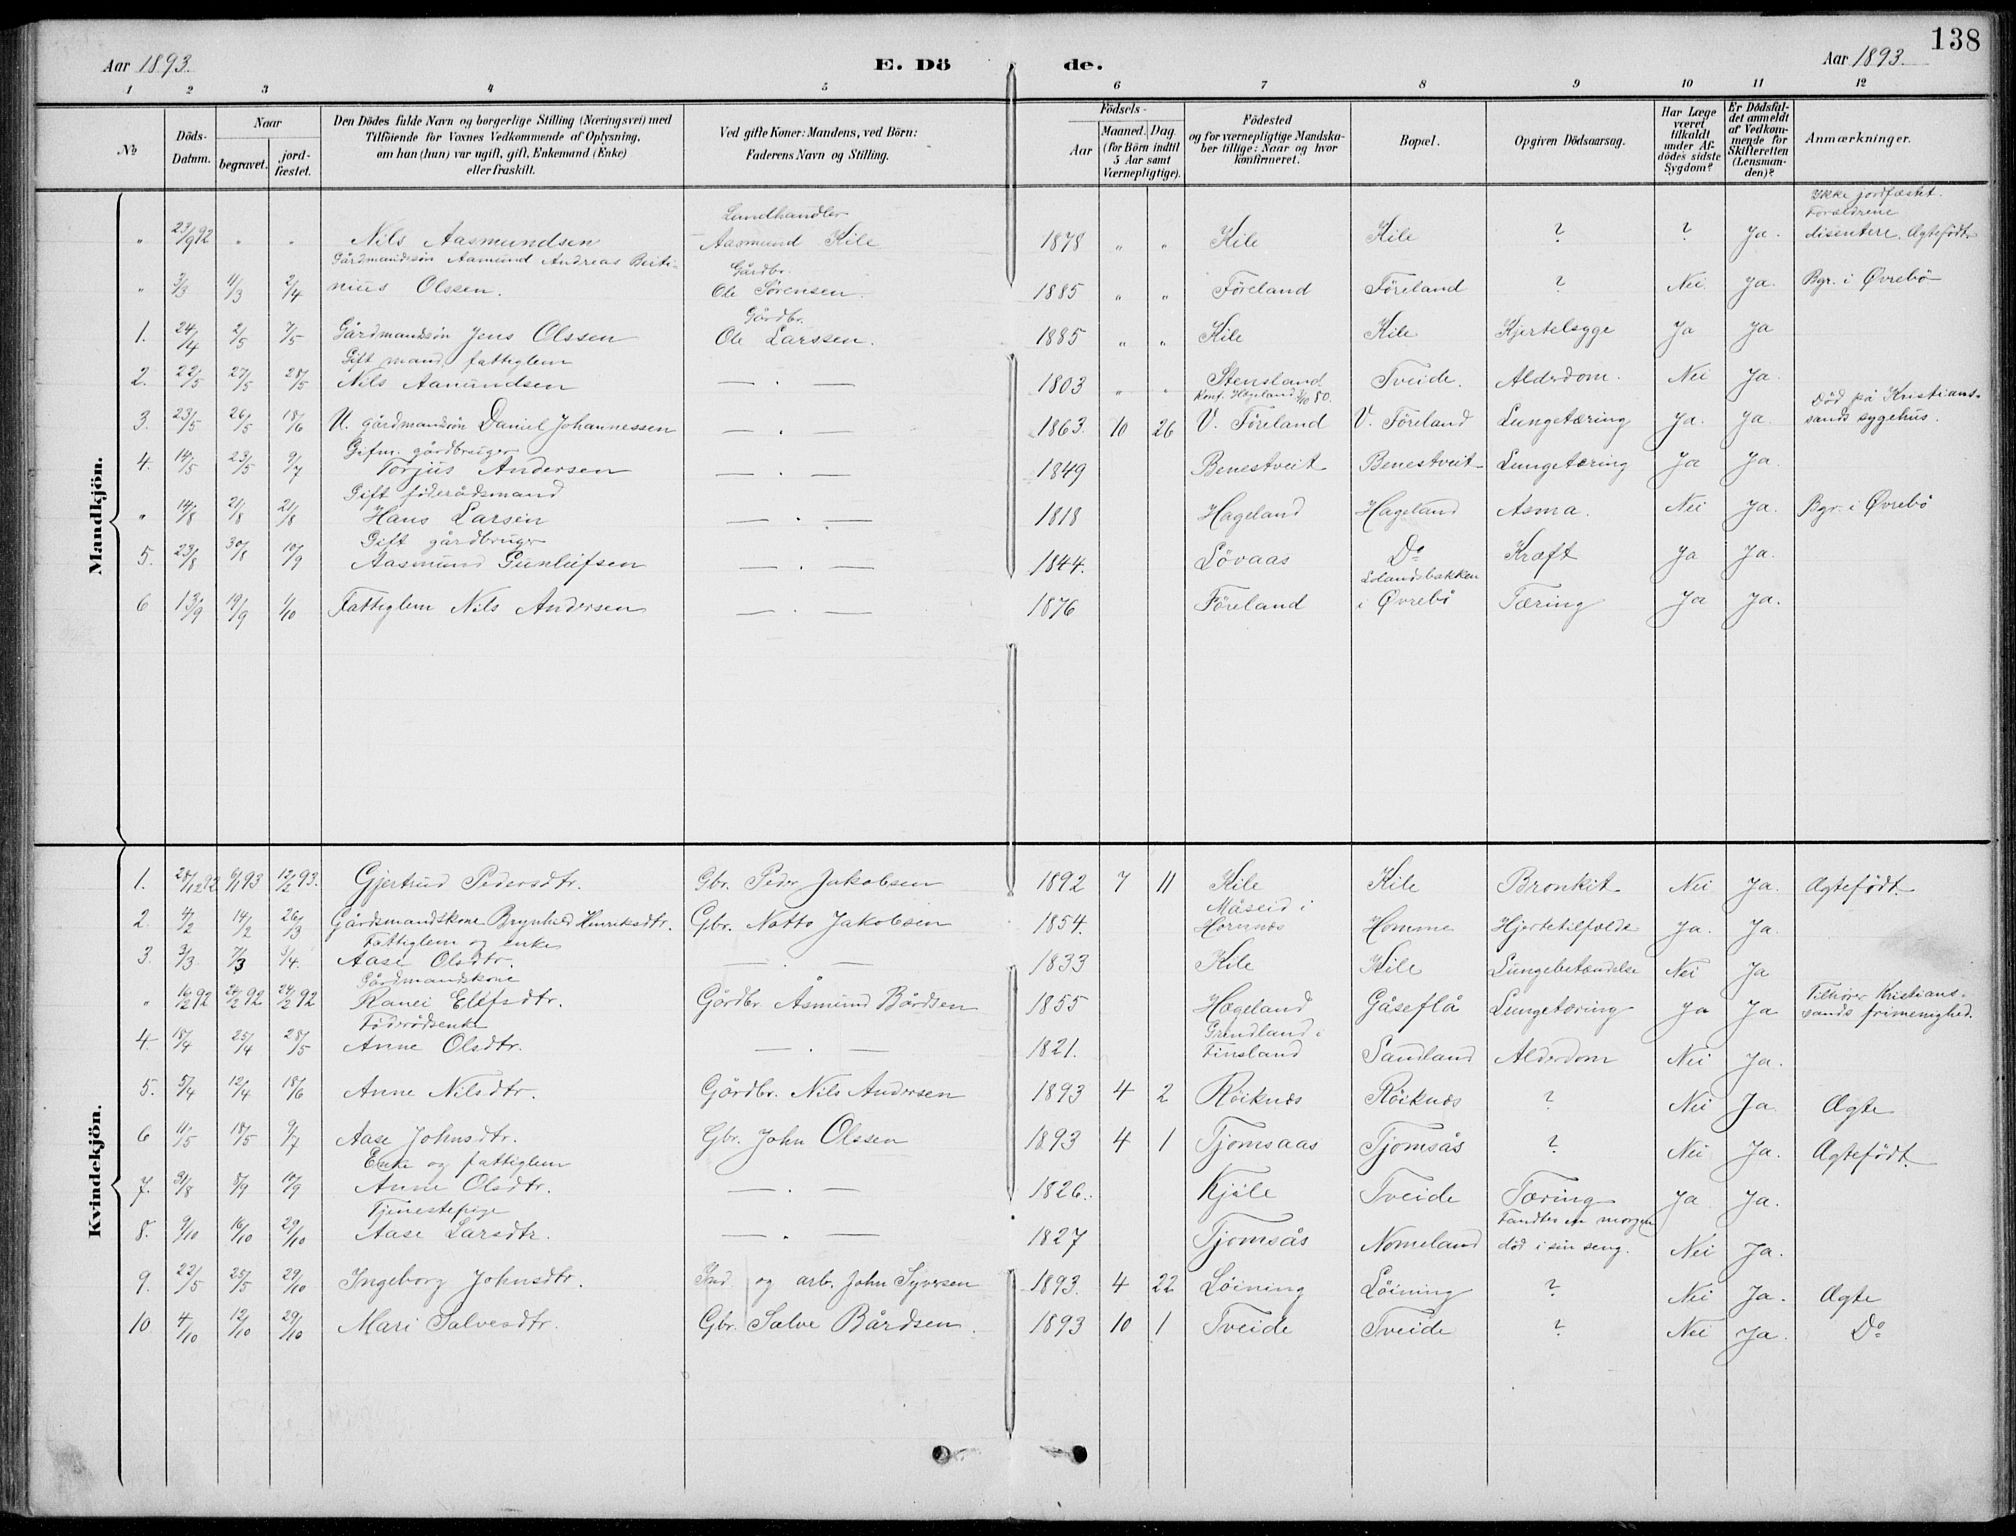 138
Aar 1893. E. Dö de. Aar 1893.
1 2 3 4 5 6 7 8 9 10 11 12
No
Döds-Datum.
Naar
begravet.
jordfæstet.
Den Dödes fulde Navn og borgerlige Stilling (Næringsvei) med
Tilföiende for Voxnes Vedkommende af Oplysning,
om han (hun) var ugift, gift, Enkemand (Enke)
eller fraskilt.
Ved gifte Koner: Mandens, ved Börn:
Faderens Navn og Stilling.
Födsels-
Aar
Maaned. Dag
(for Börn indtil
5 Aar samt
Værnepligtige).
Födested
og for værnepligtige Mandska-
ber tillige: Naar og hvor
konfirmeret.
Bopæl.
Opgiven Dödsaarsag.
Har Læge
været
tilkaldt
under Af-
dödes sidste
Sygdom?
Er Dödsfal-
det anmeldt
af Vedkom-
mende for
Skifteretten
(Lensman-
den)?
Anmærkninger.
Mandkjön.
Ikke jordfæstet.
Landhandler Forældrene
" 23/9 92 " " Nils Aasmundsen Aasmund Kile 1878 " " Kile Kile ? ? Ja. disentere. Ægtefødt.
Gårdmandssøn Aamund Andreas Berti- Gårdbr.
" 3/3 11/3 2/4 nius Olssen. Ole Sørensen. 1885 " " Föreland Föreland ? Nei Ja. Bgr. i Øvrebö
Gårdbr.
1. 24/4 2/5 7/5 Gårdmandssøn Jens Olssen Ole Larssen. 1885 " " Kile Kile Kjertelsyge Ja Ja
Gift mand, fattiglem
2. 22/5 27/5 28/5 Nils Aanundsen — . — 1803 " " Stensland. Tveide. Alderdom. Nei Ja.
Konf. Hægeland 1/10 80. Död på Kristians-
3. 23/5 26/5 18/6 U. gårdmandssøn Daniel Johannessen — . — 1863 10 26 V. Föreland V. Föreland Lungetæring Ja. Ja. sands sygehus.
Giftm. gårdbruger
4. 14/5 23/5 9/7 Torjus Andersen — . — 1849 Benestveit Benestveit Lungetæring Ja Ja.
Gift föderådsmand
" 14/8 21/8 21/8 Hans Larsen — . — 1818 Hageland Hageland Asma. Nei Ja. Bgr. i Øvrebö
Gift gårdbruger
5. 23/8 30/8 10/9 Aasmund Gunlufsen — . — 1844. Lövaas Do Kræft Ja Ja.
Lolandsbakken
6 13/9 19/9 1/10 Fattiglem Nils Andersen — . — 1876 Föreland i Øvrebö Tæring Ja Ja.
Kvindekjön.
1. 28/12 92 6/1 93 12/2 93. Gjertrud Pedersdtr. Gbr. Peder Jakobsen 1892 7 11 Kile Kile Bronkit Nei Ja. Ægtefödt.
Måseid i
2. 4/2 14/2 26/3 Gårdsmandskone Brynhild Henriksdtr. Gbr. Notto Jakobsen 1854. Hornnæs Homme Hjertetilfælde Ja. Ja.
Fattiglem og enke
3. 3/3 7/3 3/4. Aase Olsdtr. — . — 1833 Kile Kile Lungebetændelse Nei Ja
Gårdmandskone Tilhører Kristians-
" 16/2 92 24/2 92 24/2 92 Ranei Ellefsdtr. Gårdbr. Åsmund Bårdsen 1855 Hægeland Gåseflå Lungetæring Ja Ja sands frimenighed.
Föderådsenke Grindland i
4. 18/4 25/4 28/5 Anne Olsdtr. — . — 1821. Finsland Sandland Alderdom Nei Ja.
5. 5/4 12/4 18/6 Anne Nilsdtr. Gårdbr. Nils Andersen 1893 4 2 Röiknæs Röiknæs ? Nei Ja. Ægte
6 11/5 18/5 9/7 Aase Johnsdtr. Gbr. John Olssen 1893 4 1 Tjomsaas Tjomsås ? Nei Ja. Ægtefödt.
Enke og fattiglem
7. 31/8 8/9 10/9 Anne Olsdtr. — . — 1826. Kjöle Tveide Tæring Ja Ja.
Tjenestepige Fandtes en morgen
8. 9/10 16/10 29/10 Aase Larsdtr. — . — 1827 Tjomsås Nomeland död i sin seng. Nei Ja.
9. 22/5 25/5 29/10 Ingeborg Johnsdtr. Ind. og arb. John Syversen 1893. 4 22 Löining Löining ? Nei Ja. Ægte
10 4/10 12/10 29/10 Mari Salvesdtr. Gbr. Salve Bårdsen. 1893 10 1 Tveide Tveide ? Nei Ja. Do